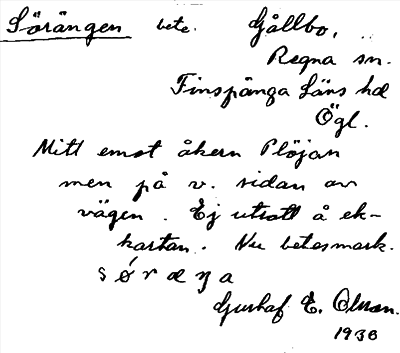 Sörängen bete. Gållbo,
Regna sn.
Finspånga Läns hd
Ögl.
Mitt emot åkern Plöjan
men på v. sidan av
vägen. Ej utsatt å ek-
kartan. Nu betesmark.
sǿræŋa
Gustaf E. Olsson.
1936